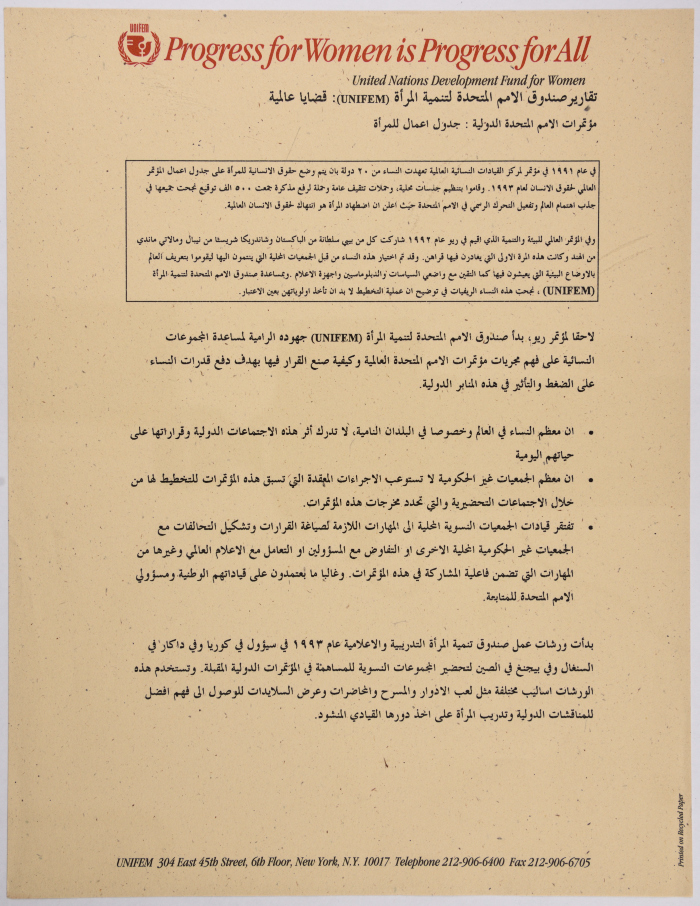 UNIFEM
Progress for Women is Progress for All
United Nations Development Fund for Women
تقارير صندوق الامم المتحدة لتنمية المرأة (UNIFEM): قضايا عالمية
مؤتمرات الامم المتحدة الدولية : جدول اعمال للمرأة
في عام ١٩٩١ في مؤتمر لمركز القيادات النسائية العالمية تعهدت النساء من ٢٠ دولة بان يتم وضع حقوق الانسانية للمرأة على جدول اعمال المؤتمر
العالمي لحقوق الانسان لعام ١٩٩٣. وقاموا بتنظيم جلسات محلية، وحملات تثقيف عامة وحملة لرفع مذكرة جمعت ٥٠٠ الف توقيع نجحت جميعها في
جذب اهتمام العالم وتفعيل التحرك الرسمي في الامم المتحدة حيث اعلن ان اضطهاد المرأة هو انتهاك لحقوق الانسان العالمية.
وفي المؤتمر العالمي للبيئة والتنمية الذي اقيم في ريو عام ١٩٩٢ شاركت كل من بيبي سلطانة من الباكستان وشاندريكا شريستا من نيبال ومالاتي ماندي
من الهند وكانت هذه المرة الاولى التي يغادرون فيها قراهن. وقد تم اختيار هذه النساء من قبل الجمعيات المحلية التي ينتمون اليها ليقوموا بتعريف العالم
بالاوضاع البيئية التي يعيشون فيها كما التقين مع واضعي السياسات والدبلوماسيين واجهزة الاعلام .وبمساعدة صندوق الامم المتحدة لتنمية المرأة
(UNIFEM) ، نجحت هذه النساء الريفيات في توضيح ان عملية التخطيط لا بد ان تأخذ اولوياتهن بعين الاعتبار.
لاحقا لمؤتمر ريو، بدأ صندوق الامم المتحدة لتنمية المرأة (UNIFEM) جهوده الرامية لمساعدة المجموعات
النسائية على فهم مجريات مؤتمرات الامم المتحدة العالمية وكيفية صنع القرار فيها بهدف دفع قدرات النساء
على الضغط والتأثير في هذه المنابر الدولية.
• ان معظم النساء في العالم وخصوصا في البلدان النامية، لا تدرك أثر هذه الاجتماعات الدولية وقراراتها على
حياتهم اليومية
• ان معظم الجمعيات غير الحكومية لا تستوعب الاجراءات المعقدة التي تسبق هذه المؤتمرات للتخطيط لها من
خلال الاجتماعات التحضيرية والتي تحدد مخرجات هذه المؤتمرات.
• تفتقر قيادات الجمعيات النسوية المحلية الى المهارات اللازمة لصياغة القرارات وتشكيل التحالفات مع
الجمعيات غير الحكومية المحلية الاخرى او التفاوض مع المسؤولين او التعامل مع الاعلام العالمي وغيرها من
المهارات التي تضمن فاعلية المشاركة في هذه المؤتمرات. وغالبا ما يعتمدون على قياداتهم الوطنية ومسؤولي
الامم المتحدة للمتابعة.
بدأت ورشات عمل صندوق تنمية المرأة التدريبية والاعلامية عام ١٩٩٣ في سيؤول في كوريا وفي داكار في
السنغال وفي بيجنغ في الصين لتحضير المجموعات النسوية للمساهمة في المؤتمرات الدولية المقبلة. وتستخدم هذه
الورشات اساليب مختلفة مثل لعب الادوار والمسرح والمحاضرات وعرض السلايدات للوصول الى فهم افضل
للمناقشات الدولية وتدريب المرأة على اخذ دورها القيادي المنشود.
UNIFEM 304 East 45th Street, 6th Floor, New York, N.Y. 10017 Telephone 212-906-6400 Fax 212-906-6705
Printed on Recycled Paper